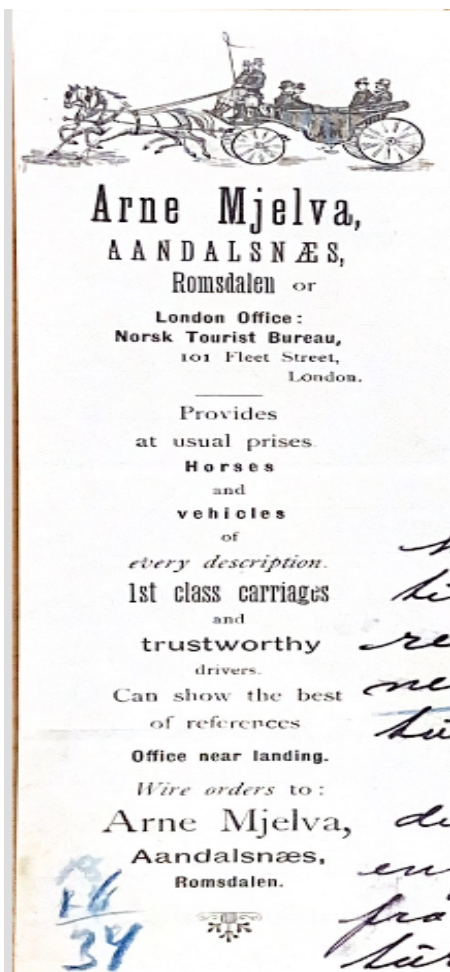 Arne Mjelva,
AANDALSNÆS,
Romsdalen or
London Office:
Norsk Tourist Bureau,
101 Fleet Street,
London.
Provides
at usual prises.
Horses
and
vehicles
of
every description.
1st class carriages
and
trustworthy
drivers.
Can show the best
of references.
Office near landing.
Wire orders to:
Arne Mjelva,
Aandalsnæs,
Romsdalen.
34